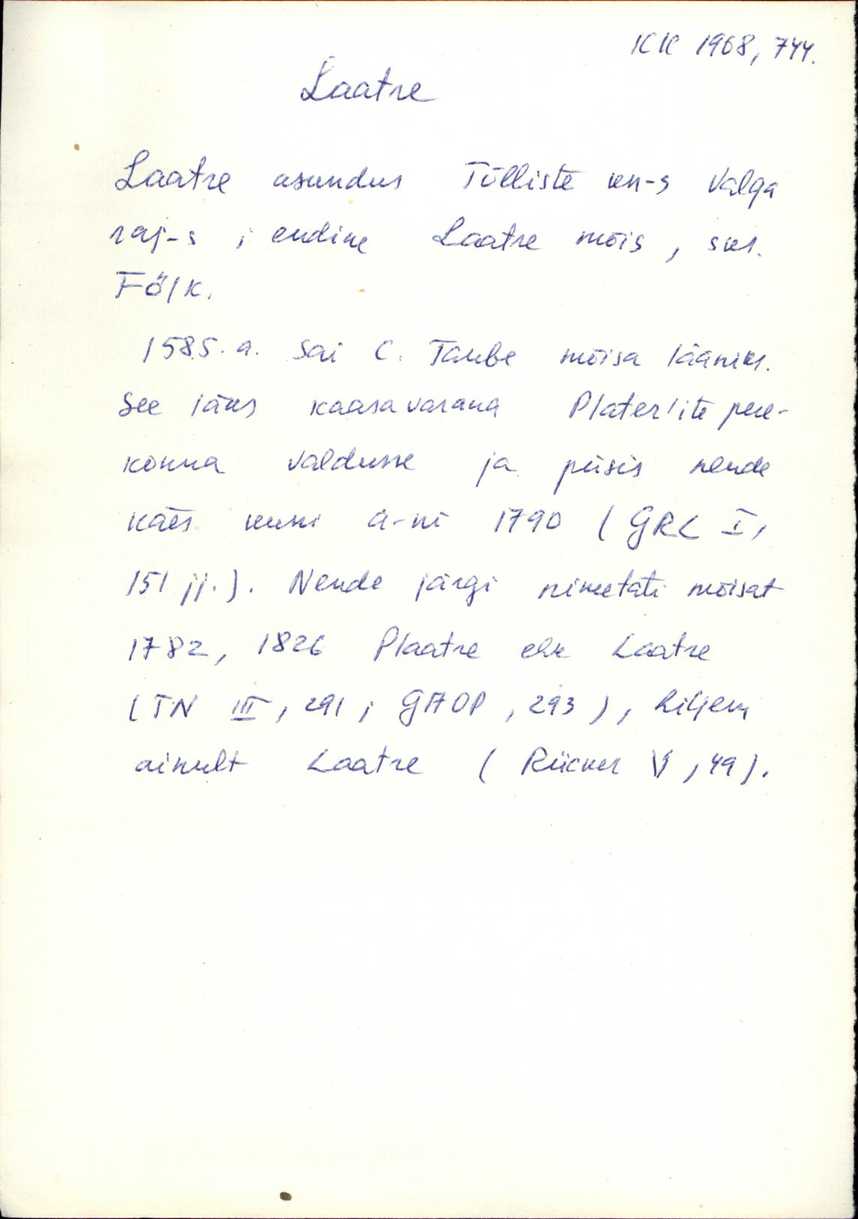 KK 1968, 744.
Laatre
Laatre asundus Tõlliste kn-s Valga
raj-s, endine Laatre mõis, sks.
Fölk.
1585. a. sai C. Taube mõisa lääniks.
See läks kaasavarana Plater'ite pere-
konna valdusse ja püsis nende
käes kuni a-ni 1790 (GRL I,
151 jj.). Nende järgi nimetati mõisat
1782, 1826 Plaatre ehk Laatre
(TN III, 291; GAOP, 293), hiljem
ainult Laatre (Rücker V, 49).